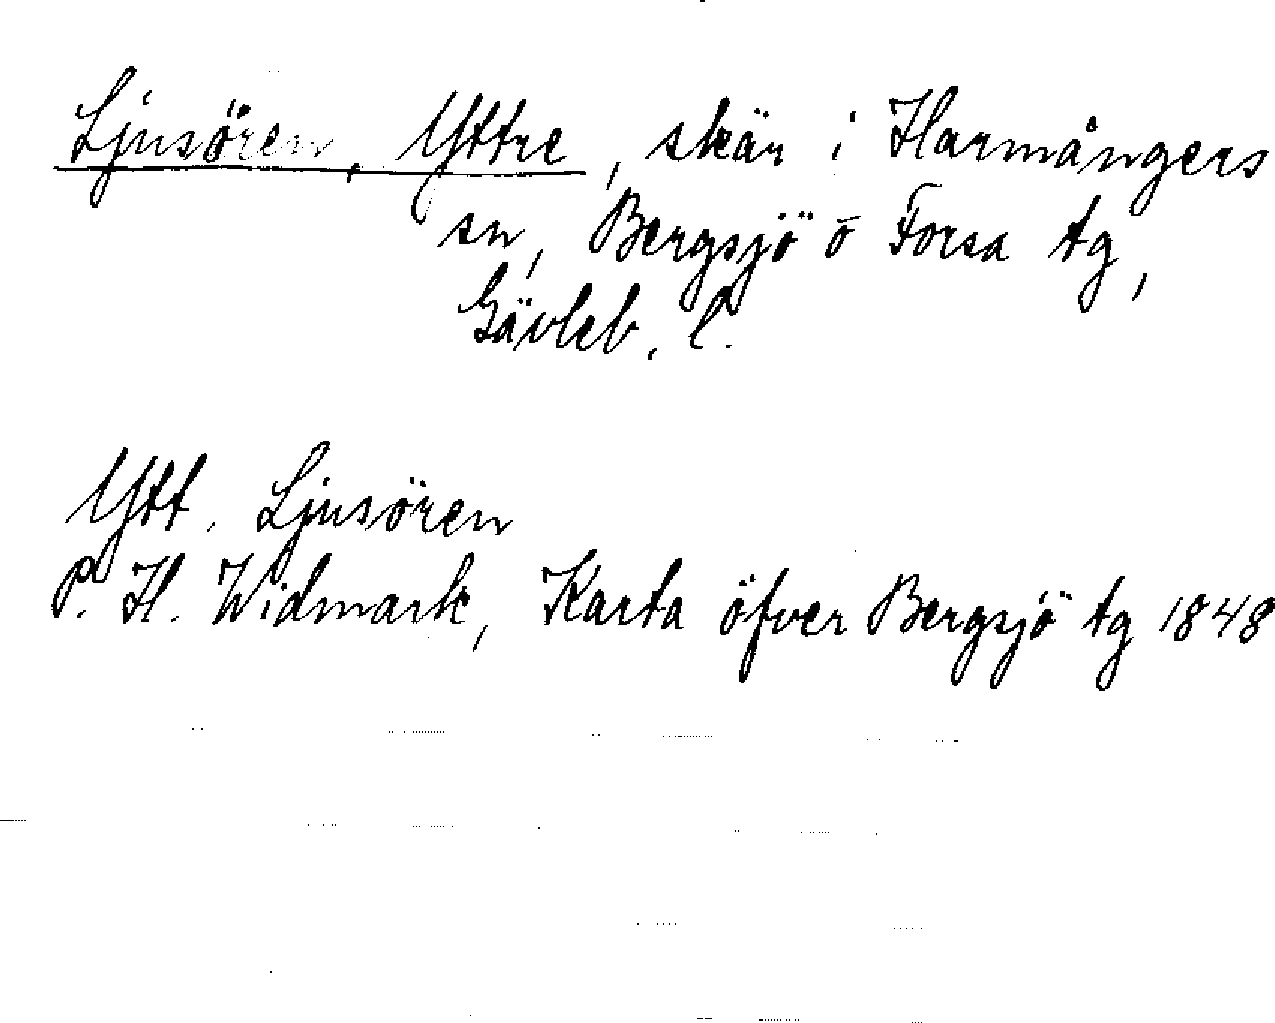 Ljusören, Yttre, skär i Harmångers
sn, Bergsjö o Forsa tg,
Gävleb. l.
Ytt. Ljusören
P. H. Widmark, Karta öfver Bergsjö tg 1848